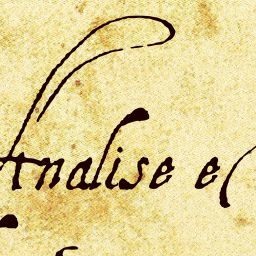 Analise e